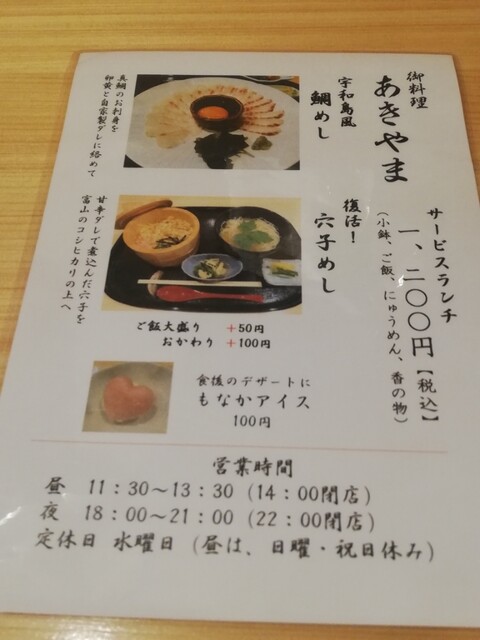 御料理
あきやま
サービスランチ
一、二〇〇円【税込】
（小鉢、ご飯、にゅうめん、香の物）
宇和島風
鯛めし
真鯛のお刺身を
卵黄と自家製ダレに絡めて
復活！
穴子めし
甘辛ダレで煮込んだ穴子を
富山のコシヒカリの上へ
ご飯大盛り ＋50円
おかわり ＋100円
食後のデザートに
もなかアイス
100円
営業時間
昼 11：30～13：30（14：00閉店）
夜 18：00～21：00（22：00閉店）
定休日 水曜日（昼は、日曜・祝日休み）